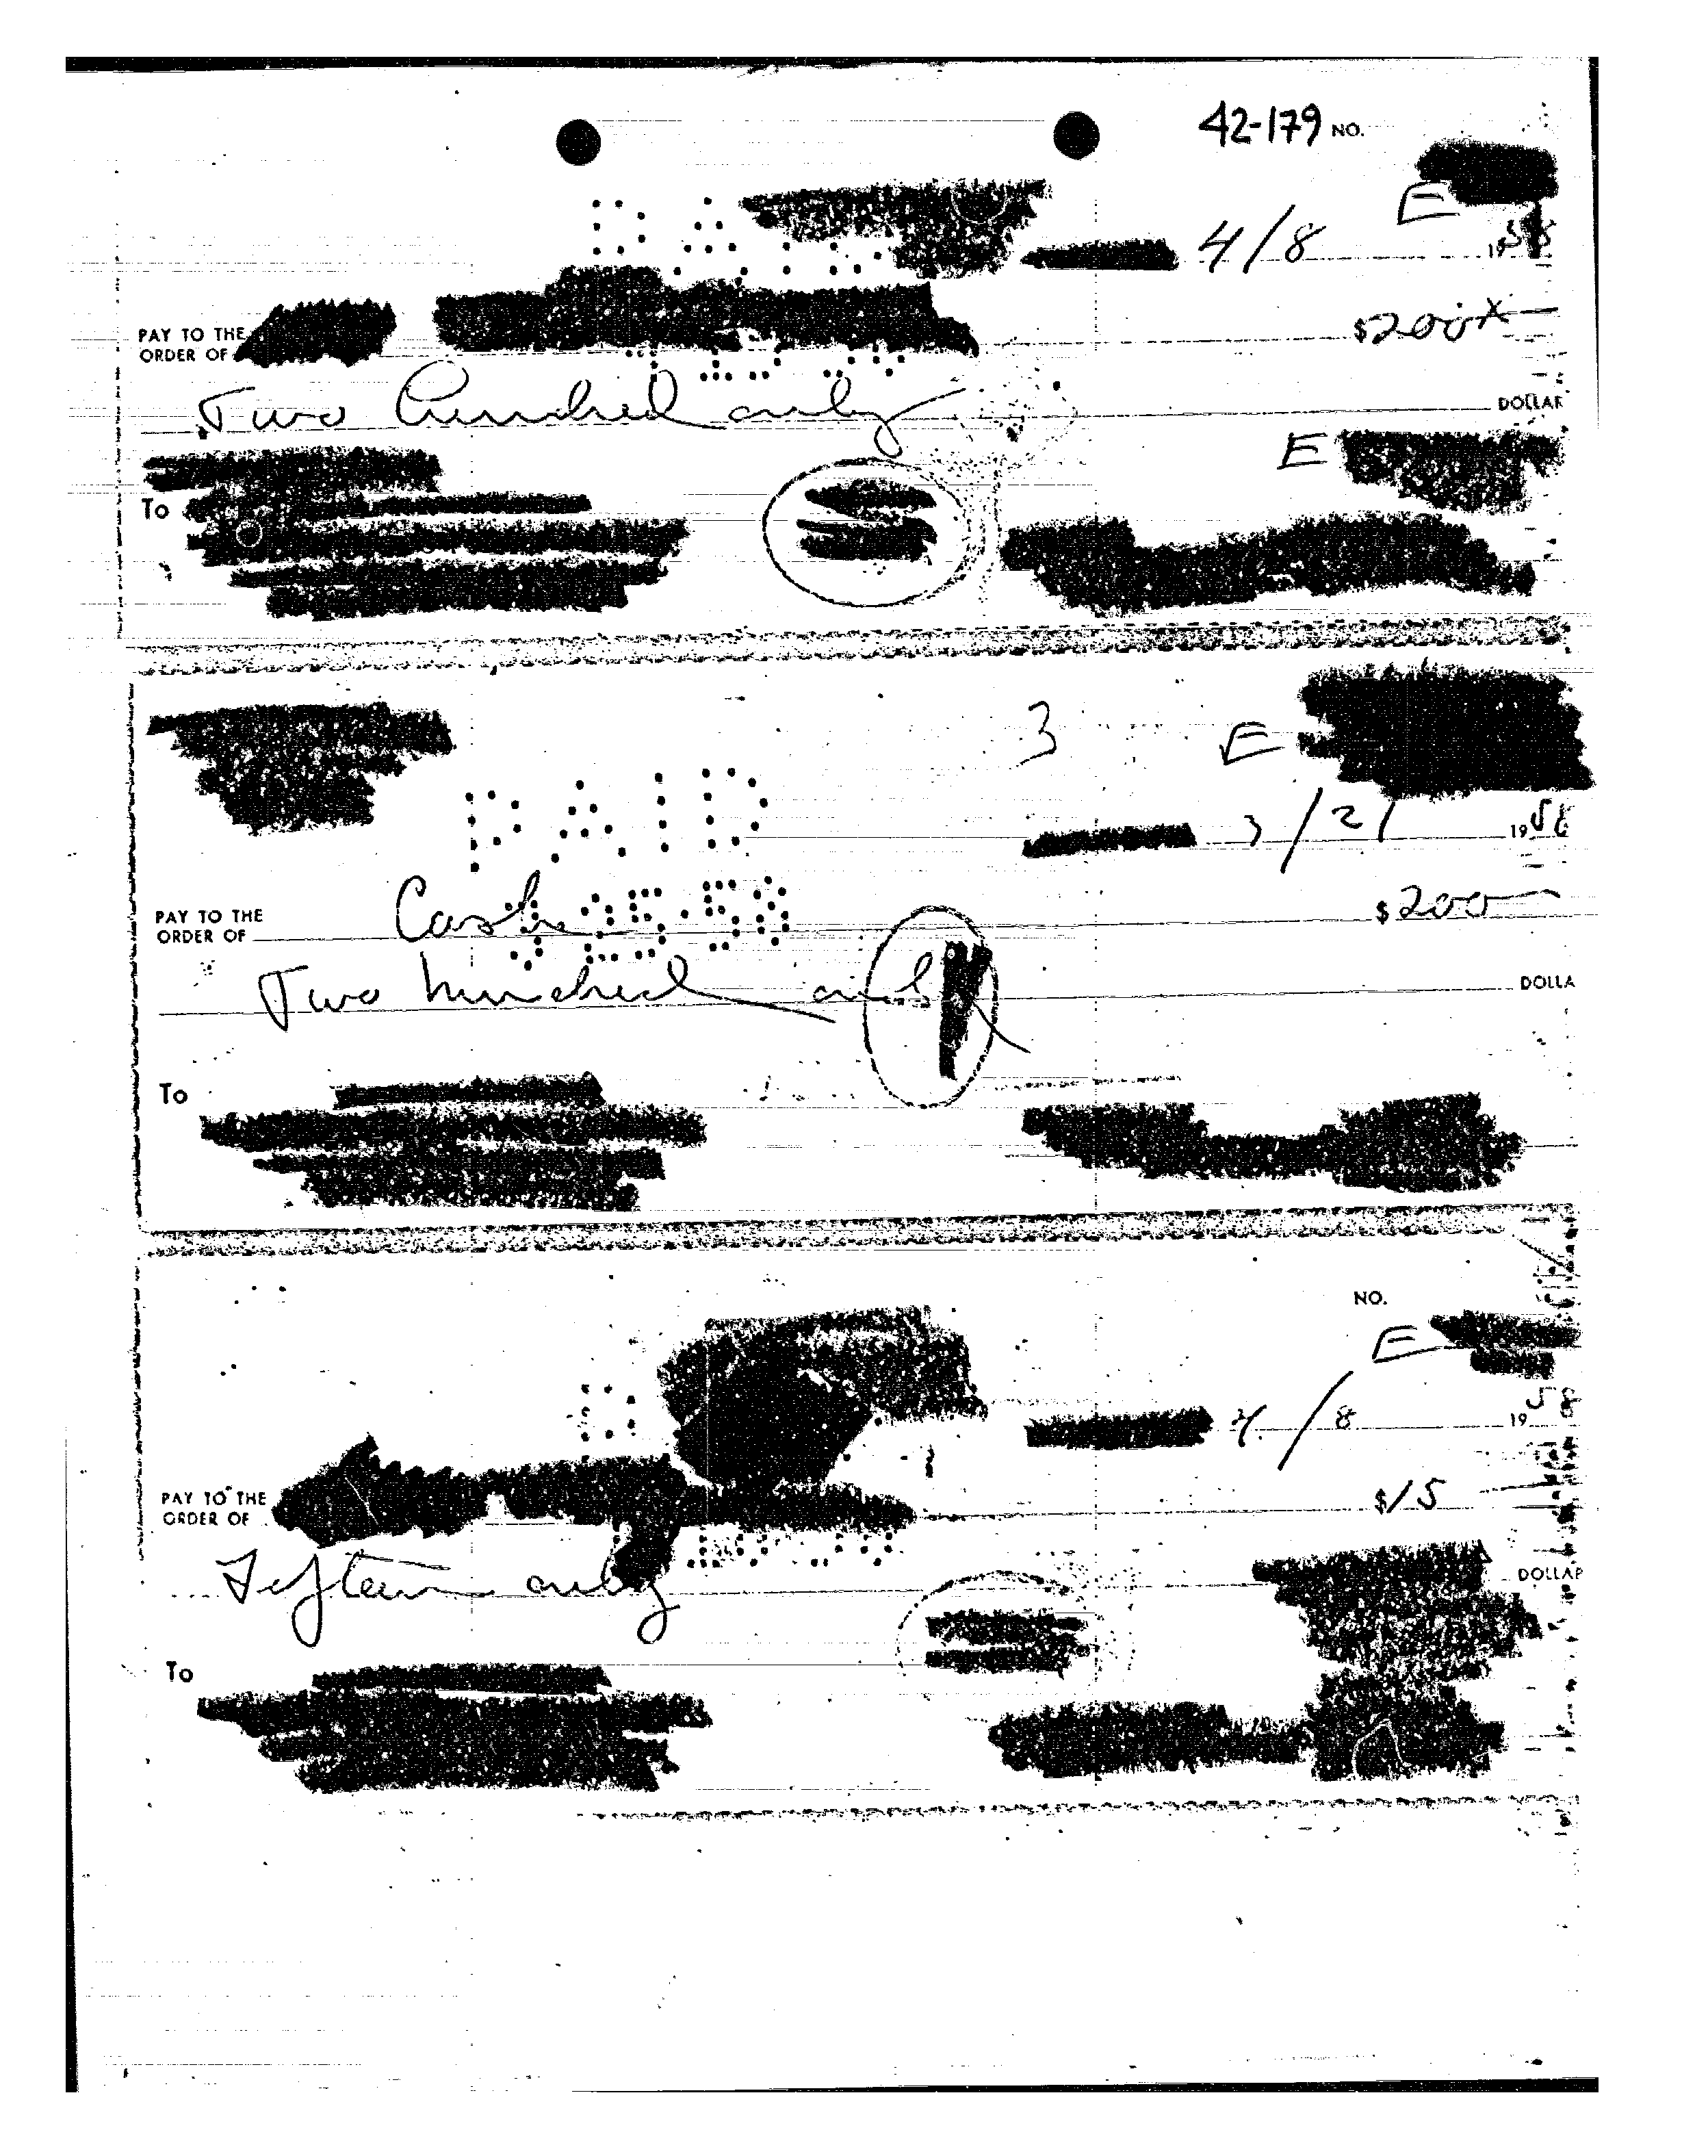 42-179 NO.
E
4/8 1958
PAY TO THE
ORDER OF
$200
Two hundred only
DOLLAR
E
To
3
E
PAID
3/21 1958
PAY TO THE
ORDER OF Cash $200
3 25 58
Two hundred only
DOLLA
To
NO.
E
4/8 1958
PAY TO THE
ORDER OF
$15
Fifteen only
DOLLAR
To